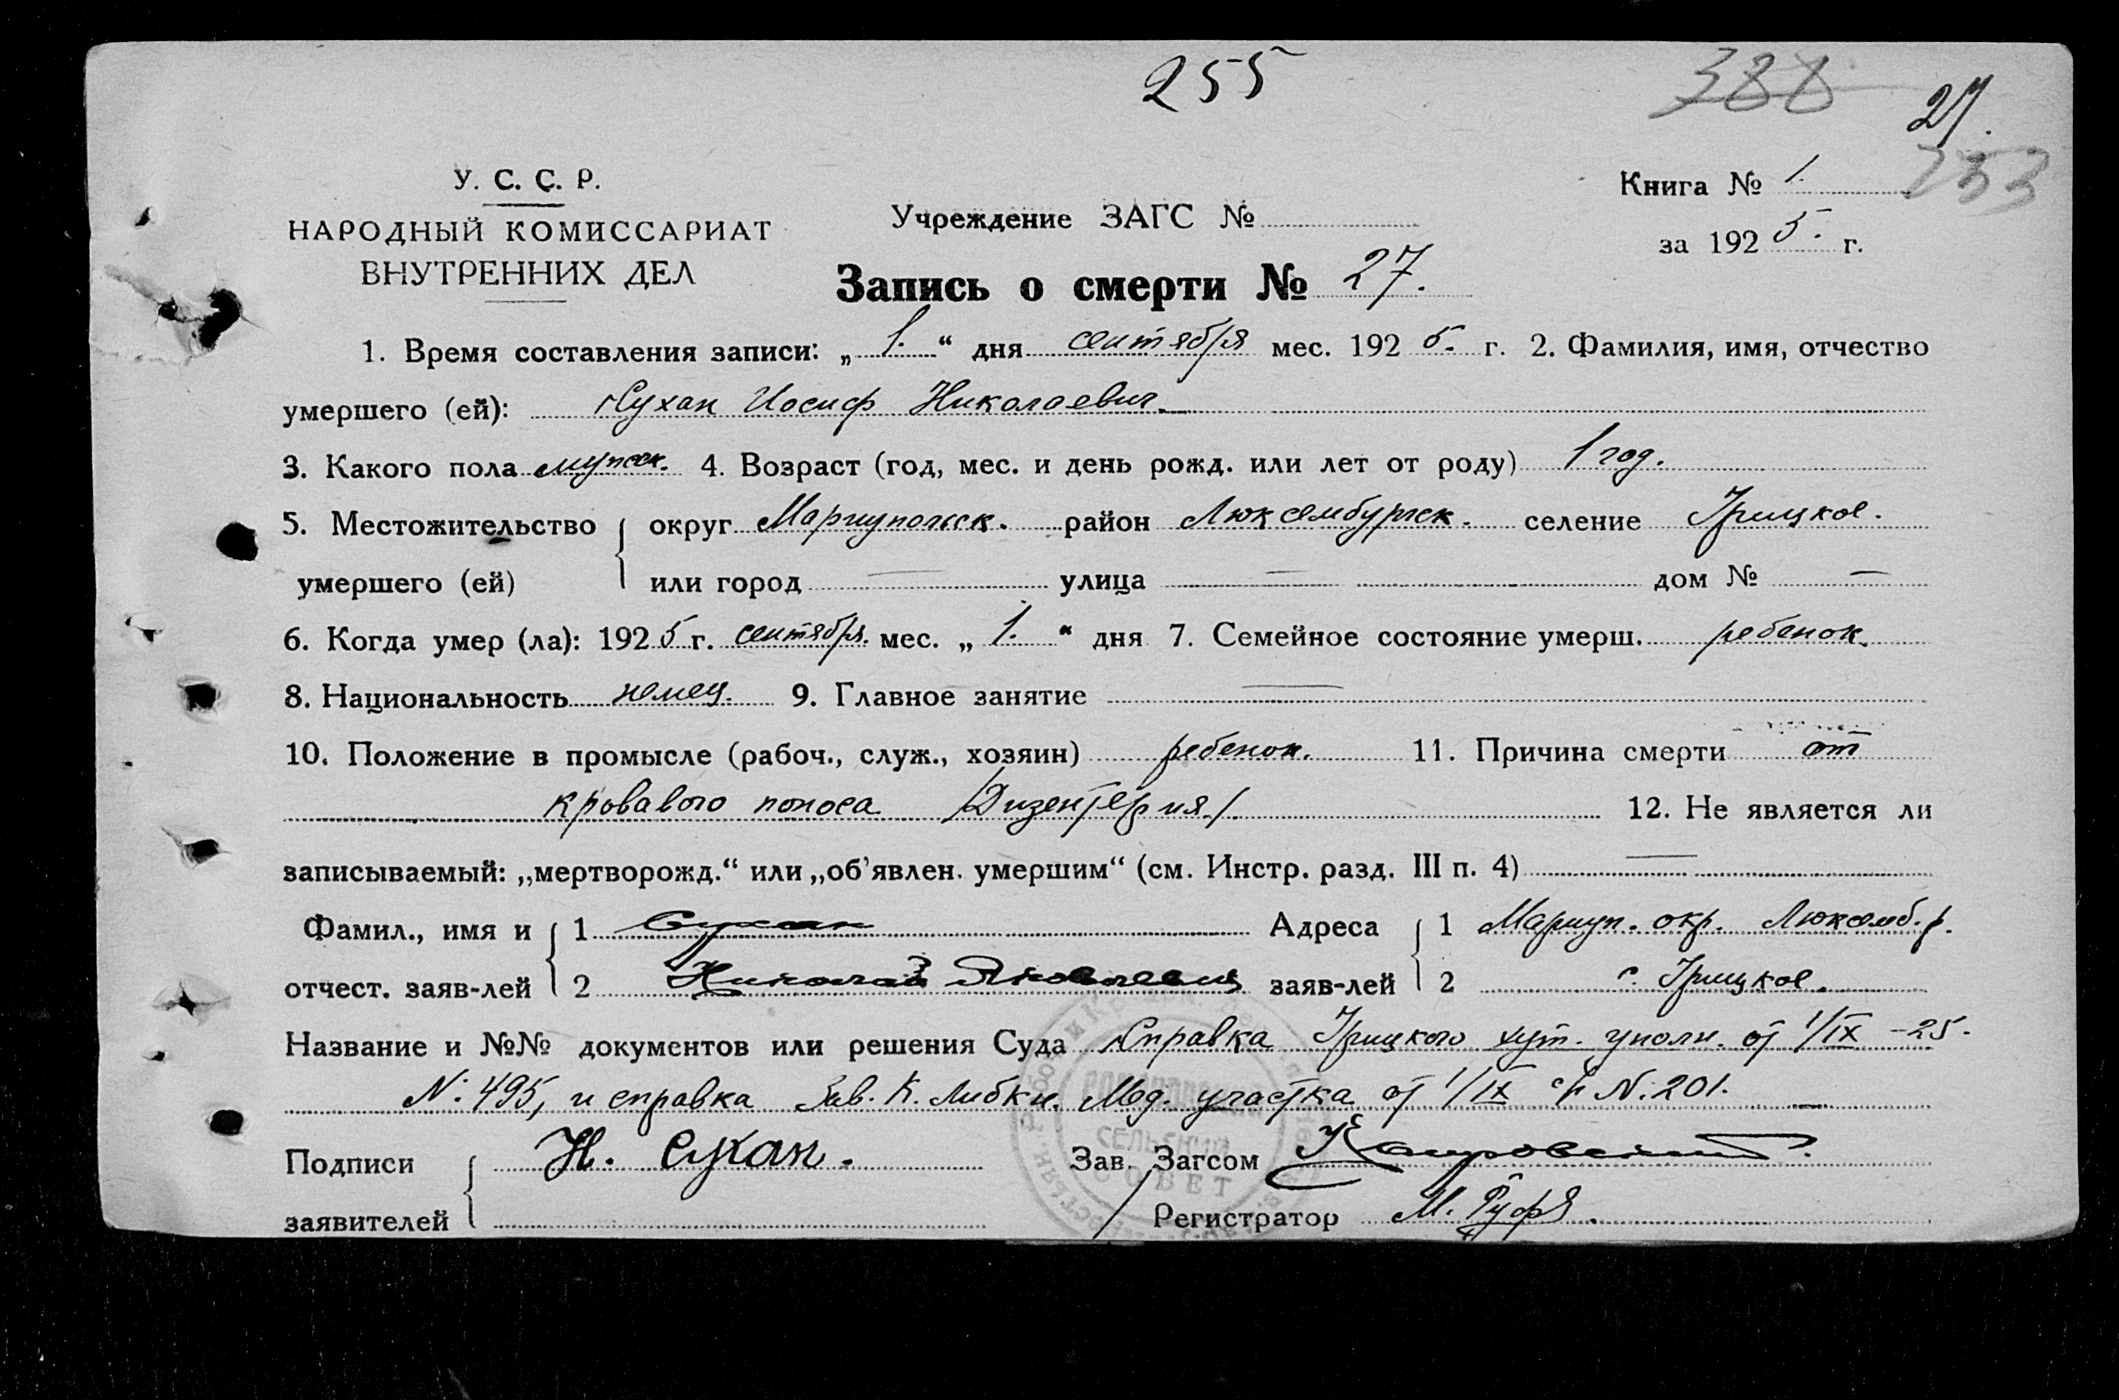 255
388
27.
253
У. С. С. Р.
НАРОДНЫЙ КОМИССАРИАТ
ВНУТРЕННИХ ДЕЛ
Учреждение ЗАГС №
Книга № 1.
за 1925. г.
Запись о смерти № 27.
1. Время составления записи: „1.“ дня сентября мес. 1925. г. 2. Фамилия, имя, отчество
умершего (ей): Сухан Иосиф Николаевич.
3. Какого пола мужск. 4. Возраст (год, мес. и день рожд. или лет от роду) 1 год.
5. Местожительство округ Мариупольск. район Люксембургск. селение Грицкое.
умершего (ей) или город — улица — дом № —
6. Когда умер (ла): 1925 г. сентября. мес. „1.“ дня 7. Семейное состояние умерш. ребенок.
8. Национальность немец. 9. Главное занятие —
10. Положение в промысле (рабоч., служ., хозяин) ребенок. 11. Причина смерти от
кровавого поноса /Дизентерия/. 12. Не является ли
записываемый: „мертворожд.“ или „об'явлен. умершим“ (см. Инстр. разд. III п. 4) —
Фамил., имя и 1 Сухан Адреса 1 Мариуп. окр. Люксемб. р.
отчест. заяв-лей 2 Николай Яковлевич заяв-лей 2 с. Грицкое.
Название и №№ документов или решения Суда Справка Грицкого хут. уполн. от 1/IX -25.
N: 495, и справка Зав. К. Либкн. Мед. участка от 1/IX N: 201.
Подписи Н. Сухан. Зав. Загсом
заявителей Регистратор М.
СЕЛЬСКИЙ
СОВЕТ